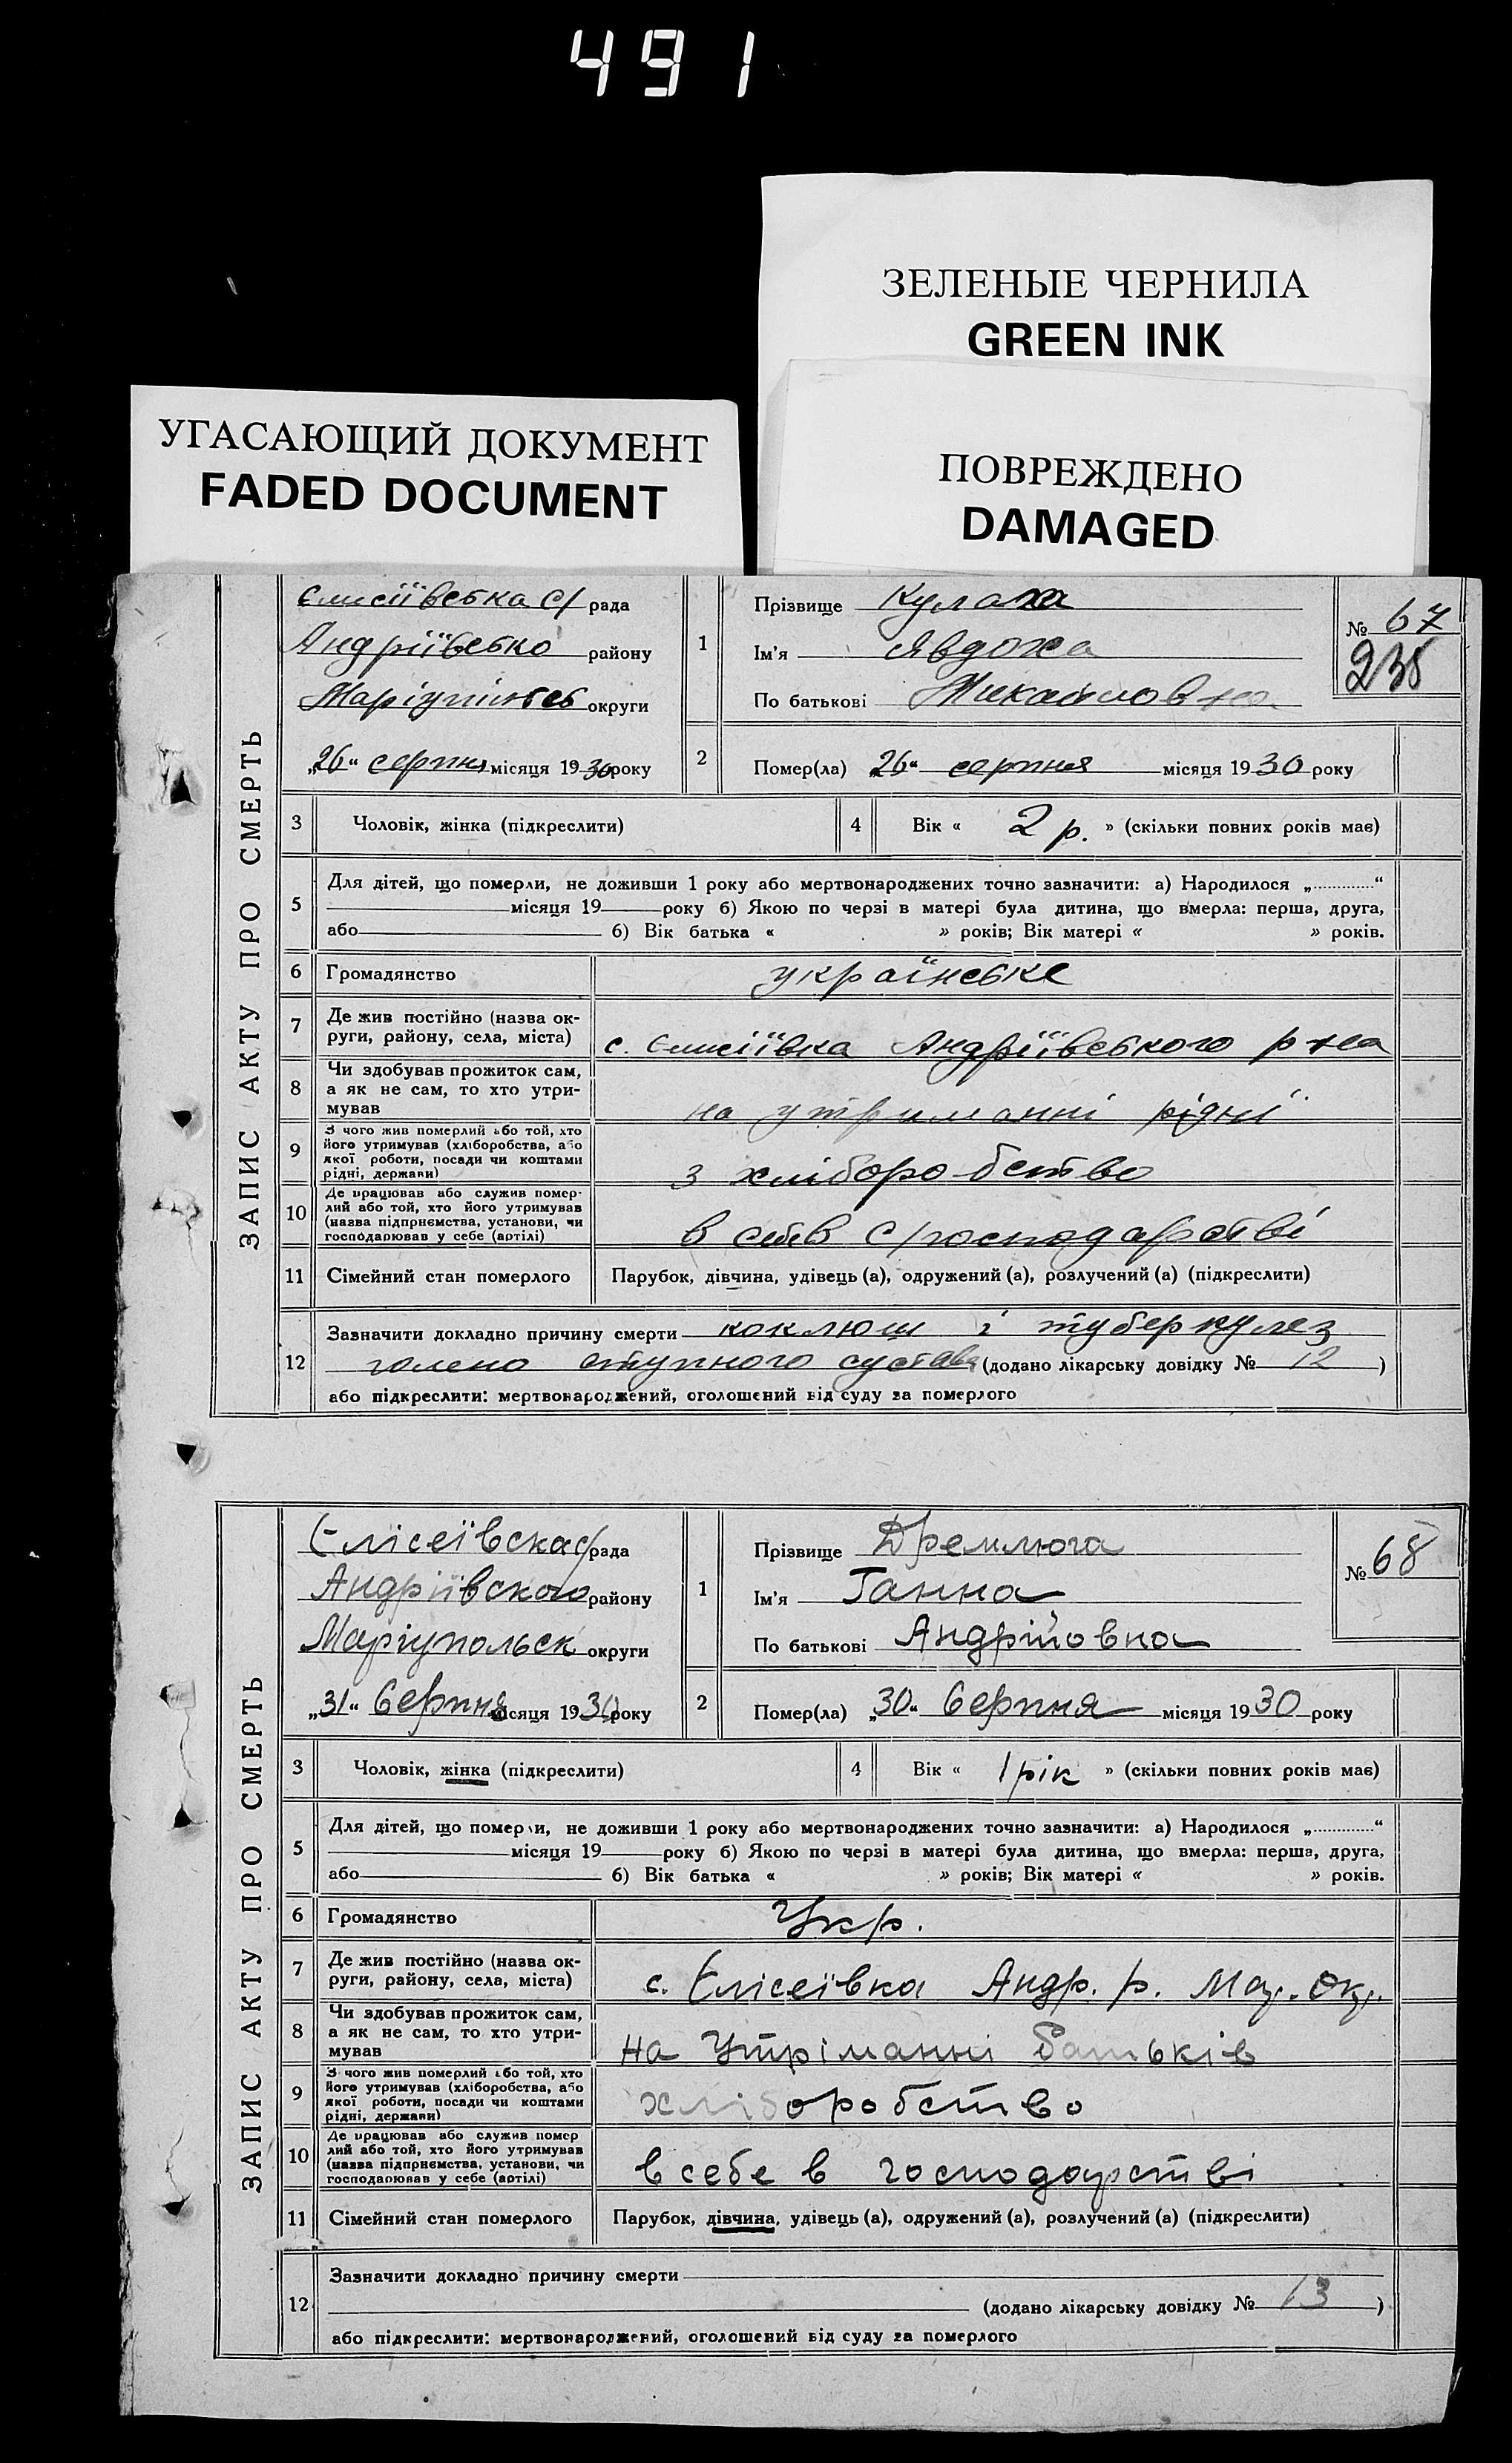 491
ЗЕЛЕНЫЕ ЧЕРНИЛА
GREEN INK
УГАСАЮЩИЙ ДОКУМЕНТ
FADED DOCUMENT
ПОВРЕЖДЕНО
DAMAGED
ЗАПИС АКТУ ПРО СМЕРТЬ
Єлисіївська с/ рада
Андріївсько району
округи
„26“ серпня місяця 1930 року
1
Прізвище Кулаха
Ім'я Явдоха
По батькові Михайловна
№ 67
238
2
Помер(ла) „26“ серпня місяця 1930 року
3 Чоловік, жінка (підкреслити)
4 Вік « 2 р. » (скільки повних років має)
5
Для дітей, що померли, не доживши 1 року або мертвонароджених точно зазначити: а) Народилося „............“
місяця 19 року б) Якою по черзі в матері була дитина, що вмерла: перша, друга,
або б) Вік батька « » років; Вік матері « » років.
6 Громадянство українське
7
Де жив постійно (назва ок-
руги, району, села, міста) с. Єлисіївка Андріївського р-на
8
Чи здобував прожиток сам,
а як не сам, то хто утри-
мував на утриманні рідні
9
З чого жив померлий або той, хто
його утримував (хліборобства, або
якої роботи, посади чи коштами
рідні, держави) з хліборобство
10
Де працював або служив помер-
лий або той, хто його утримував
(назва підприємства, установи, чи
господарював у себе (артілі) в себе в с/господарстві
11 Сімейний стан померлого Парубок, дівчина, удівець (а), одружений (а), розлучений (а) (підкреслити)
12
Зазначити докладно причину смерти коклюш і туберкулез
голено ступного сустава (додано лікарську довідку № 12 )
або підкреслити: мертвонароджений, оголошений від суду за померлого
ЗАПИС АКТУ ПРО СМЕРТЬ
Єлісеївска с/рада
Андріївского району
Маріупольск округи
„31“ Серпня місяця 1930 року
1
Прізвище Дремлюга
Ім'я Ганна
По батькові Андрійовна
№ 68
2
Помер(ла) „30“ Серпня місяця 1930 року
3 Чоловік, жінка (підкреслити)
4 Вік « 1 рік » (скільки повних років має)
5
Для дітей, що померли, не доживши 1 року або мертвонароджених точно зазначити: а) Народилося „............“
місяця 19 року б) Якою по черзі в матері була дитина, що вмерла: перша, друга,
або б) Вік батька « » років; Вік матері « » років.
6 Громадянство Укр.
7
Де жив постійно (назва ок-
руги, району, села, міста) с. Єлісеївка Андр. р. Мар. Окр.
8
Чи здобував прожиток сам,
а як не сам, то хто утри-
мував на Утріманні батьків
9
З чого жив померлий або той, хто
його утримував (хліборобства, або
якої роботи, посади чи коштами
рідні, держави) хліборобство
10
Де працював або служив помер
лий або той, хто його утримував
(назва підприємства, установи, чи
господарював у себе (артілі) в себе в господарстві
11 Сімейний стан померлого Парубок, дівчина, удівець (а), одружений (а), розлучений (а) (підкреслити)
12
Зазначити докладно причину смерти
(додано лікарську довідку № 13 )
або підкреслити: мертвонароджений, оголошений від суду за померлого